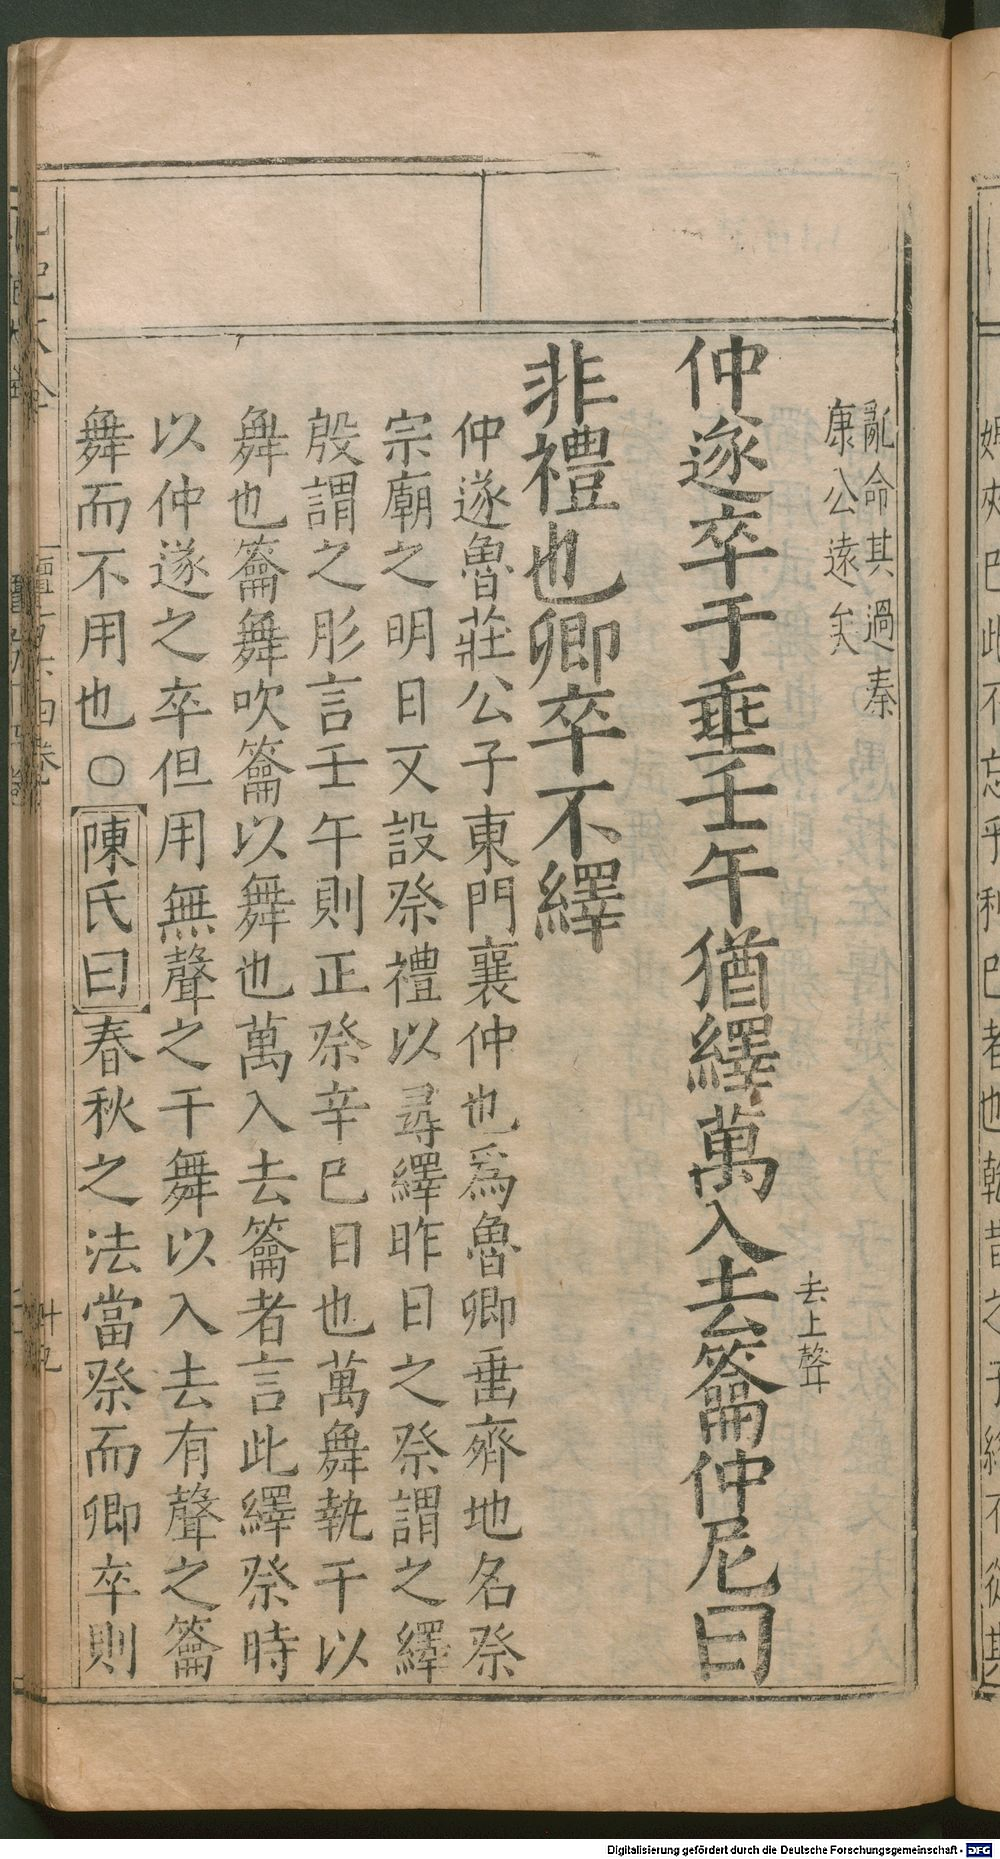 亂命其過秦
康公遠矣
仲遂卒于垂壬午猶繹萬入去籥仲尼曰
去上聲
非禮也卿卒不繹
仲遂魯莊公子東門襄仲也爲魯卿垂齊地名祭
宗廟之明日又設祭禮以尋繹昨日之祭謂之繹
殷謂之肜言壬午則正祭辛巳日也萬舞執干以
舞也籥舞吹籥以舞也萬入去籥者言此繹祭時
以仲遂之卒但用無聲之干舞以入去有聲之籥
舞而不用也○陳氏曰春秋之法當祭而卿卒則
Digitalisierung gefördert durch die Deutsche Forschungsgemeinschaft - DFG